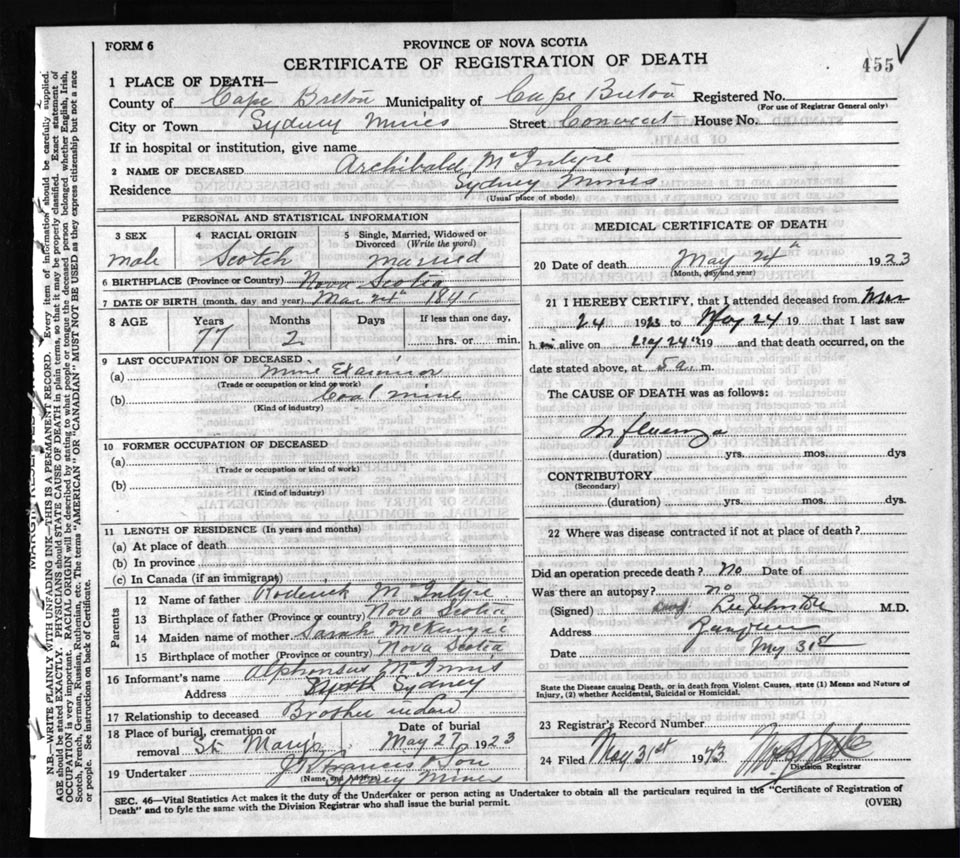 FORM 6
PROVINCE OF NOVA SCOTIA
CERTIFICATE OF REGISTRATION OF DEATH
455
1 PLACE OF DEATH—
County of Cape Breton Municipality of Cape Breton Registered No.
(For use of Registrar General only)
City or Town Sydney Mines Street Convent House No.
If in hospital or institution, give name
2 NAME OF DECEASED Archibald McIntyre
Residence Sydney Mines
(Usual place of abode)
PERSONAL AND STATISTICAL INFORMATION
3 SEX
male
4 RACIAL ORIGIN
Scotch
5 Single, Married, Widowed or Divorced (Write the word)
married
6 BIRTHPLACE (Province or Country) Nova Scotia
7 DATE OF BIRTH (month, day and year) Mar 24th
8 AGE Years Months Days If less than one day,
77 2 hrs. or min.
9 LAST OCCUPATION OF DECEASED
(a) Mine Examiner
(Trade or occupation or kind of work)
(b) Coal mine
(Kind of industry)
10 FORMER OCCUPATION OF DECEASED
(a)
(Trade or occupation or kind of work)
(b)
(Kind of industry)
11 LENGTH OF RESIDENCE (In years and months)
(a) At place of death
(b) In province
(c) In Canada (if an immigrant)
Parents
12 Name of father Roderick McIntyre
13 Birthplace of father (Province or country) Nova Scotia
14 Maiden name of mother Sarah McKenzie
15 Birthplace of mother (Province or country) Nova Scotia
16 Informant's name Alphonsus McInnis
Address North Sydney
17 Relationship to deceased Brother in law
18 Place of burial, cremation or removal St Mary's Date of burial May 27 1923
19 Undertaker Francis & Son
(Name and Address) Sydney Mines
MEDICAL CERTIFICATE OF DEATH
20 Date of death May 24th 1923
(Month, day and year)
21 I HEREBY CERTIFY, that I attended deceased from Mar
24 1923 to May 24 19 that I last saw
him alive on May 24th 19 and that death occurred, on the
date stated above, at 5 a.m.
The CAUSE OF DEATH was as follows:
Influenza
(duration) yrs. mos. dys
CONTRIBUTORY
(Secondary)
(duration) yrs. mos. dys.
22 Where was disease contracted if not at place of death?
Did an operation precede death? No Date of
Was there an autopsy? no
(Signed) M.D.
Address
Date May 31st
State the Disease causing Death, or in death from Violent Causes, state (1) Means and Nature of Injury, (2) whether Accidental, Suicidal or Homicidal.
23 Registrar's Record Number
24 Filed May 31st
Division Registrar
SEC. 46—Vital Statistics Act makes it the duty of the Undertaker or person acting as Undertaker to obtain all the particulars required in the "Certificate of Registration of
Death" and to fyle the same with the Division Registrar who shall issue the burial permit.
(OVER)
N.B.—WRITE PLAINLY WITH UNFADING INK—THIS IS A PERMANENT RECORD. Every item of information should be carefully supplied.
AGE should be stated EXACTLY. PHYSICIANS should STATE CAUSE OF DEATH in plain terms, so that it may be properly classified. Exact statement of
OCCUPATION is very important. RACIAL ORIGIN will be described by stating to what people or tongue the deceased person belonged whether English, Irish,
Scotch, French, German, Russian, Ruthenian, etc. The terms "AMERICAN" OR "CANADIAN" MUST NOT BE USED as they express citizenship but not a race
or people. See instructions on back of Certificate.